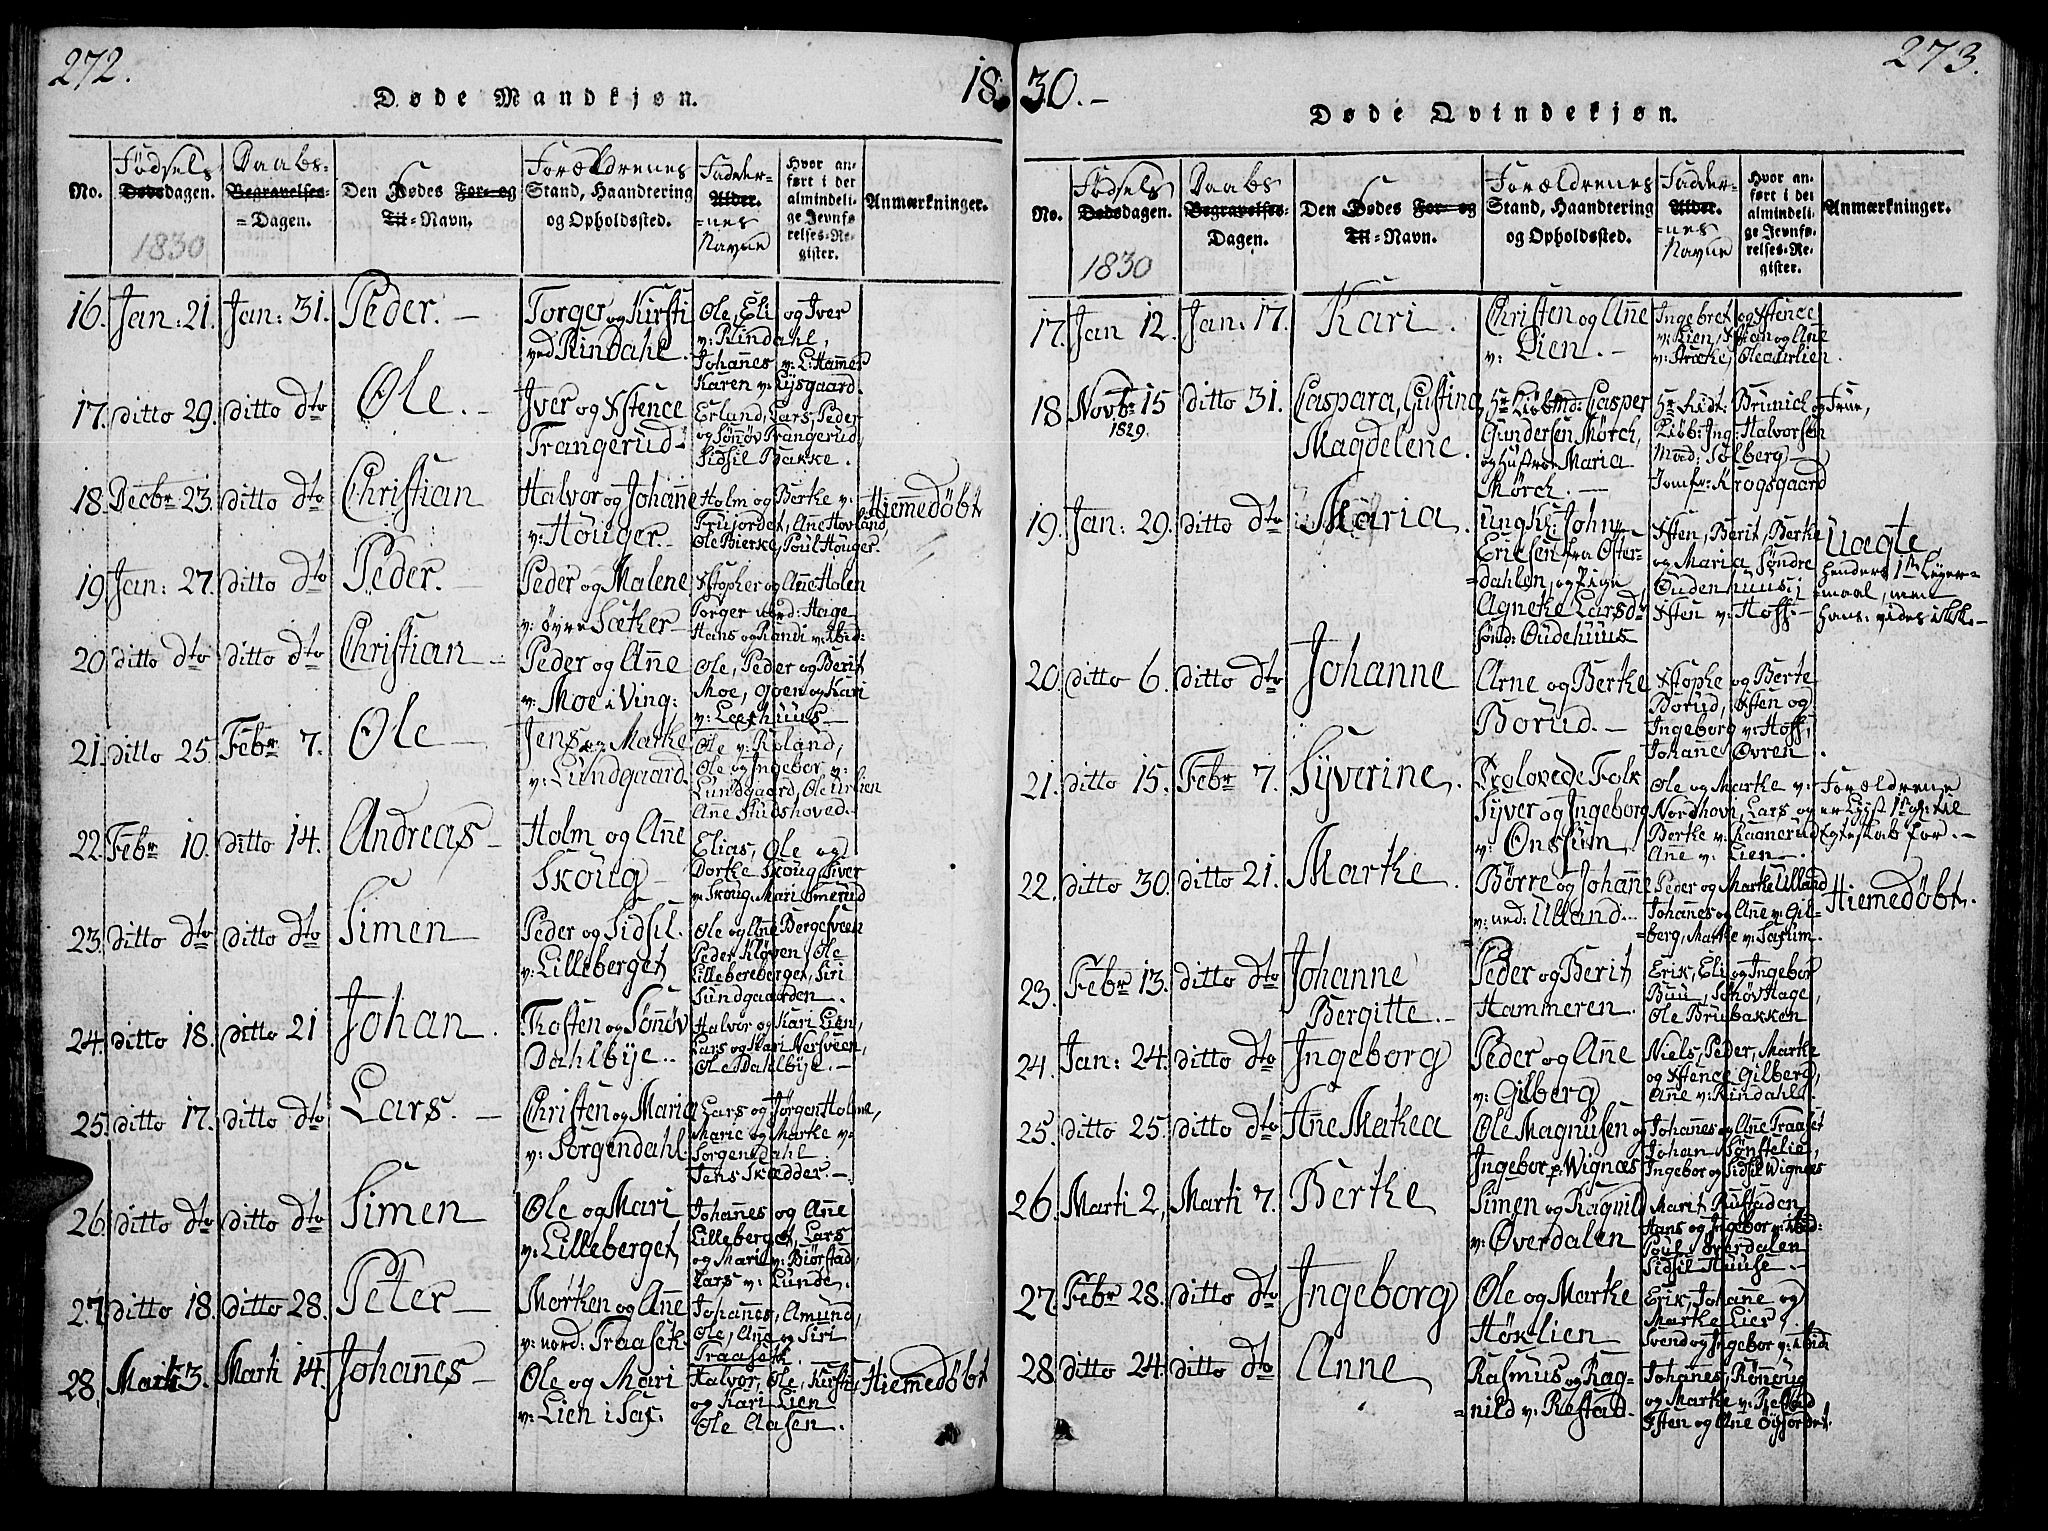 272.
1830.-
Døde Mandkjøn.
No.
Fødsels
Dødsdagen.
1830
Daabs-
Begravelses-
=Dagen.
Den Dødes For- og
Til=Navn.
Forældrenes
Stand, Haandtering
og Opholdssted.
Fadder-
Alder.
=nes
Navne
Hvor an-
ført i det
almindeli-
ge Jevnfø-
relses-Re-
gister.
Anmærkninger.
16. Jan: 21. Jan: 31. Peder. -
Torger og Kirsti
ved Rindahl.
Ole, Eli og Iver
v: Rindahl,
Johannes v: L: Hammer
Karen v: Lysgaard.
17. ditto 29. ditto dto Ole. -
Iver og Xstence
Trangerud-
Erland, Lars, Peder
og Sönöv Trangerud,
Sidsil Bakke.
18. Decbr 23. ditto dto Christian
Halvor og Johane
v: Höuger.-
Holm og Berte v:
Frujordet, Ane Hovland,
Ole Bierke, Poul Höuger.
Hiemedöbt
19. Jan: 27. ditto dto Peder. -
Peder og Malene
v: øvre Sæther-
Xstopher og Ane Holen
Torger ned: Hage
Hans og Randi v: ibid:
20. ditto dto ditto dto Christian -
Peder og Ane
v: Moe i Ving:
Ole, Peder og Berit
Moe, Goen og Kari
v: Leethuus-
21. ditto 25. Febr 7. Ole -
Jens og Marte
v: Lundgaard
Ole v: Roland,
Ole og Ingebor v:
Lundgaard, Ole Urlien
Ane Studshoved.
22. Febr 10. ditto 14. Andreas -
Holm og Ane
Skoug -
Elias, Ole og
Dorte Skoug, Siver
v: Skoug, Mari Smerud
23. ditto dto ditto dto Simen
Peder og Sidsil.
v: Lilleberget
Ole og Ane Bergesveen
Peder Klöven, Ole
Lilleberget, Siri
Sundgaarden.
24. ditto 18. ditto 21 Johan.
Thosten og Sönöv
Dahlbye.
Halvor og Kari Lien,
Lars og Kari Nersveen,
Ole Dahlbye. -
25. ditto 17. ditto dto Lars. -
Christen og Maria
v: Sorgendahl
Lars og Jörgen Holme,
Marie og Marte v:
Sorgendahl.
Jens Skædder. -
26. ditto dto ditto dto Simen
Ole og Mari
v: Lilleberget
Johanes og Ane
Lilleberget, Lars
og Mari v: Biørstad,
Lars v: Lunde.
27. ditto 18. ditto 28. Peter -
Morten og Ane
v: nord: Traaseth
Johanes, Amund,
Ole, Ane og Siri
Traaseth.
28. Marti 3. Marti 14. Johannes -
Ole og Mari
v: Lien i Sax.
Halvor, Ole, Kirsti,
og Kari Lien
Ole Aasen.
Hiemedöbt
273.
Døde Qvindekjøn.
No.
Fødsels
Dødsdagen.
1830
Daabs
Begravelses-
Dagen.
Den Dødes For- og
Til=Navn.
Forældrenes
Stand, Haandtering
og Opholdssted.
Fadder-
Alder.
=nes
Navne
Hvor an-
ført i det
almindeli-
ge Jevnfø-
relses-Re-
gister.
Anmærkninger.
17. Jan 12. Jan: 17. Kari.
Christen og Ane
v: Lien. -
Ingebret og Xstence
v: Lien, og Ane
Ole Aurlien.
18 Novbr 15 1829. ditto 31. Caspara, Gustina,
Magdelene.
Casper
Gundersen Mørch,
og Hustroe Maria
Mørch. -
Brunich og Frue,
Halvorsen
Mad: Solberg
Jomfr: Krogsgaard
19. Jan: 29. ditto dto Maria.
Ungk: John
Ericsen fra Öster-
=dahlen, og Pige
Agnete Larsd:
sönd: Oudehuus
Xsten, Berit, Berte
og Maria Söndre
Oudenhuus,
Xsten v: Hoff. -
Uagte
hendes 1ste Leyer-
=maal, men
hans: vides ikke-
20. ditto 6. ditto dto Johanne
Arne og Berthe
Borud. -
Xstophe og Berte
Borud, Østen og
Ingeborg v: Hoff,
Johane Øvren.
21. ditto 15. Febr 7. Syverine.
Trolovede Folk
Syver og Ingeborg
v: Onssum
Ole og Marthe v:
Nordhovn, Lars og
Berthe v: Ragnerud
Ane v: Lien.
Forældrene
er lyst 1ste G: til
Egteskab for. -
22. ditto 30. ditto 21. Marthe.
Børre og Johane
v: ned: Ulland.
Peder og Marthe Ulland
Johanes og Ane v: Gil-
=berg, Marthe v: Saxum.
Hiemedöbt.
23. Febr 13. ditto dto Johanne
Bergitte. -
Peder og Berit
Hammeren.
Erik, Eli og Ingebor
Buu, Schöv Hage,
Ole Brubakken
24. Jan: 24. ditto dto Ingeborg
Peder og Ane
v: Gilberg
Niels, Peder, Marthe
og Xstence Gilberg,
Ane v: Rindahl.
25. ditto 25. ditto dto Ane Mathea
Ole Magnusen og
Ingebor p: Wignæs
Johanes og Ane Traaset
Johan Sönstelie,
Ingebor og Sidsil Wignæs
26. Marti 2. Marti 7. Berthe
Simen og Ragnild
v: Øverdalen
Marit Rustaden
Hans og Ingebor v: ibid:
Poul Øverdalen
Sidsil Huuse. -
27. Febr 28. ditto dto Ingeborg
Ole og Marthe
Höxlien
Erik, Johane og
Marthe Lier,
Svend og Ingebor v: ibid
28. ditto 24. ditto dto Anne
Rasmus og Rag-
=nild v: Restad.
Johanes, Rönoug
og Marthe v: Restad
Østen og Ane